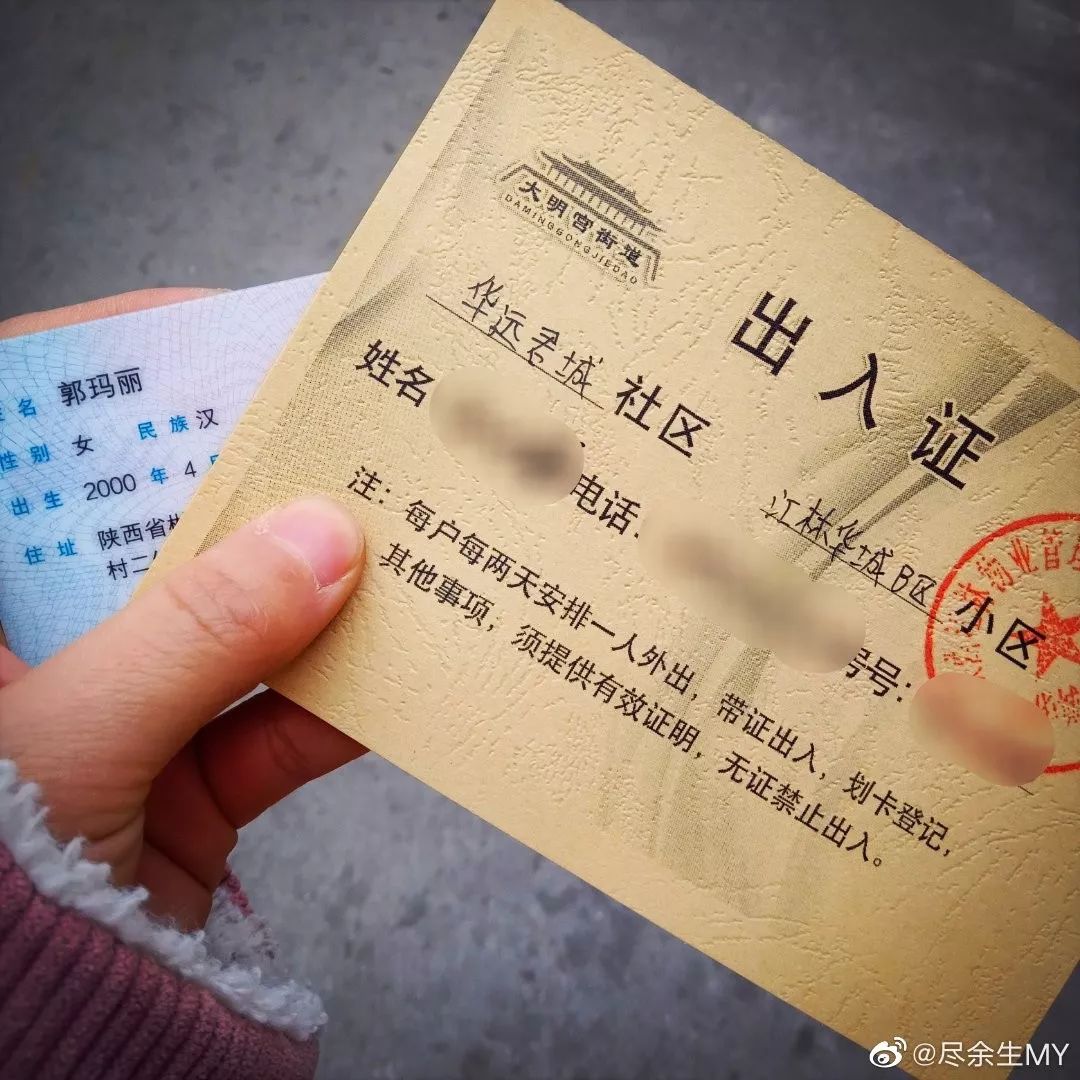 大明宫街道
DAMINGGONGJIEDAO
出入证
华远君城 社区
江林华城B区 小区
姓名
电话:
号:
注：每户每两天安排一人外出，带证出入，划卡登记，
其他事项，须提供有效证明，无证禁止出入。
物业管理
名 郭玛丽
性别 女 民族 汉
出生 2000 年 4
住址 陕西省
村二
@尽余生MY